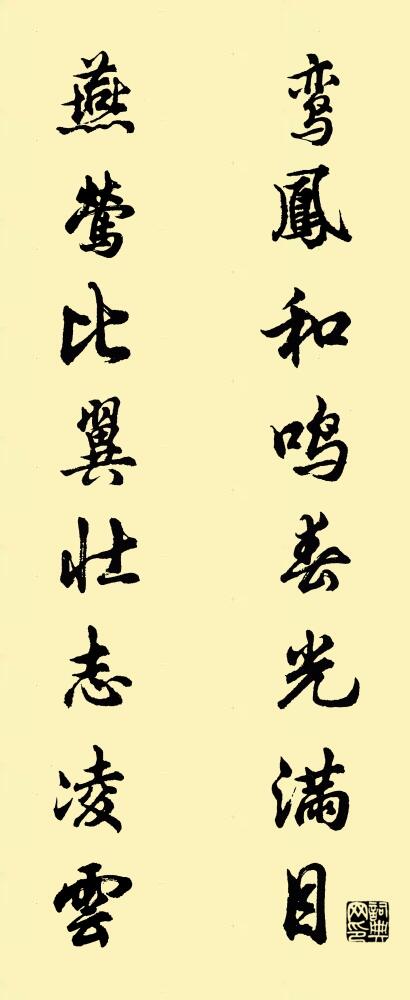 鸾鳳和鸣春光满目
燕莺比翼壮志凌雲
詞典网印